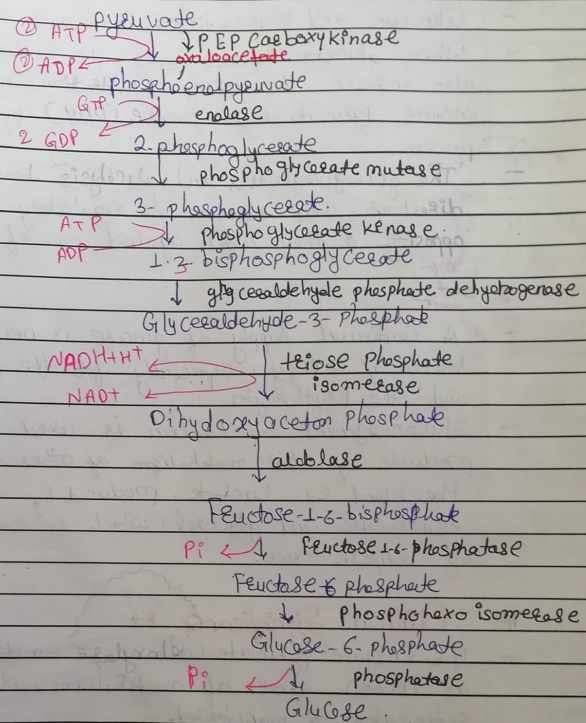 pyruvate
② ATP ↓ PEP Carboxykinase
② ADP oxaloacetate
phosphoenolpyruvate
GTP enalase
2 GDP 2-phosphoglycerate
phosphoglycerate mutase
3- phosphoglycerate.
ATP phosphoglycerate kenase.
ADP 1.3-bisphosphoglycerate
glyceraldehyde phosphate dehydrogenase
Glyceraldehyde-3-phosphate
NADH+H+ triose phosphate
NAD+ isomerase
Dihydoxyaceton phosphate
aldolase
Fructose-1-6-bisphosphate
Pi Fructose 1-6-phosphatase
Fructose 6 phosphate
phosphohexo isomerase
Glucose-6-phosphate
Pi phosphatase
Glucose.